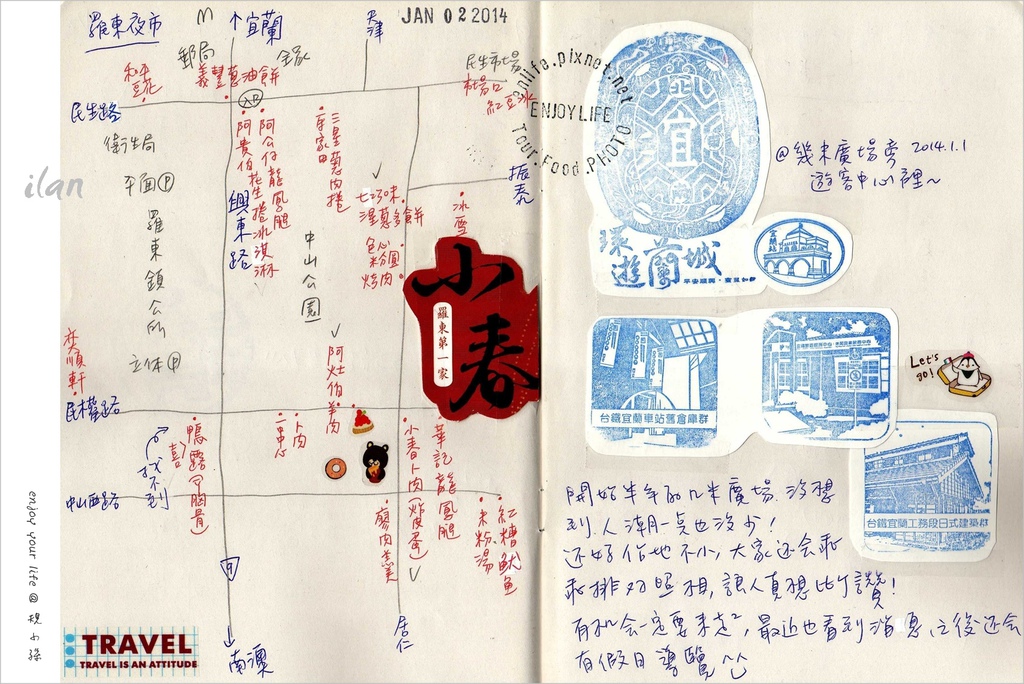 ilan
enjoy your life @
羅東夜市
M
↑宜蘭
天津
JAN 02 2014
郵局
全家
和平豆花
義豐蔥油餅
民生市場
市場口
紅豆冰
民生路
入口
衛生局
平面P
羅東鎮公所
立体P
阿貴伯花生捲冰淇淋
阿公仔龍鳳腿
興東路
三皇蔥肉捲
中山公園
七巧味
溼蔥多餅
粉圓
烤肉
冰雪
振泰
小春
羅東第一家
阿灶伯羊肉
奕順軒
民權路
找不到
卜肉
小春卜肉(炸皮蛋)
華記龍鳳腿
中山西路
廖肉羹
米粉湯
紅糟魷魚
居仁
南澳
TRAVEL
TRAVEL IS AN ATTITUDE
enlife.pixnet.net
ENJOYLIFE
Tour.Food.PHOTO
宜
北
環遊蘭城
平安順興
宜蘭站
@幾米廣場旁 2014.1.1
遊客中心裡~
台鐵宜蘭車站舊倉庫群
Let's go!
台鐵宜蘭工務段日式建築群
開始半年的几米廣場,沒想
到人潮一莫也沒少!
还好佔地不小,大家还会乖
乖排对照相,讓人真想比个讚!
有机会一定要来走走,最近也看到消息,之後还会
有假日導覽